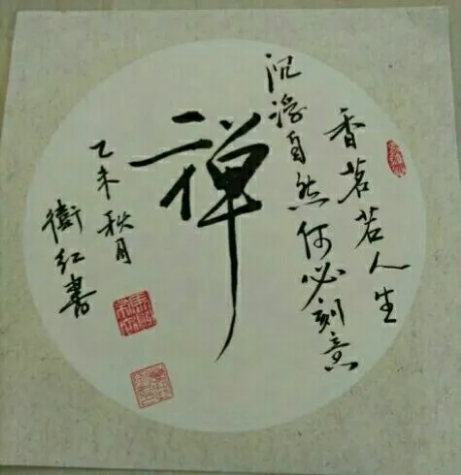 香茗若人生
沉浮自然何必刻意
禅
乙未秋月
衛红書